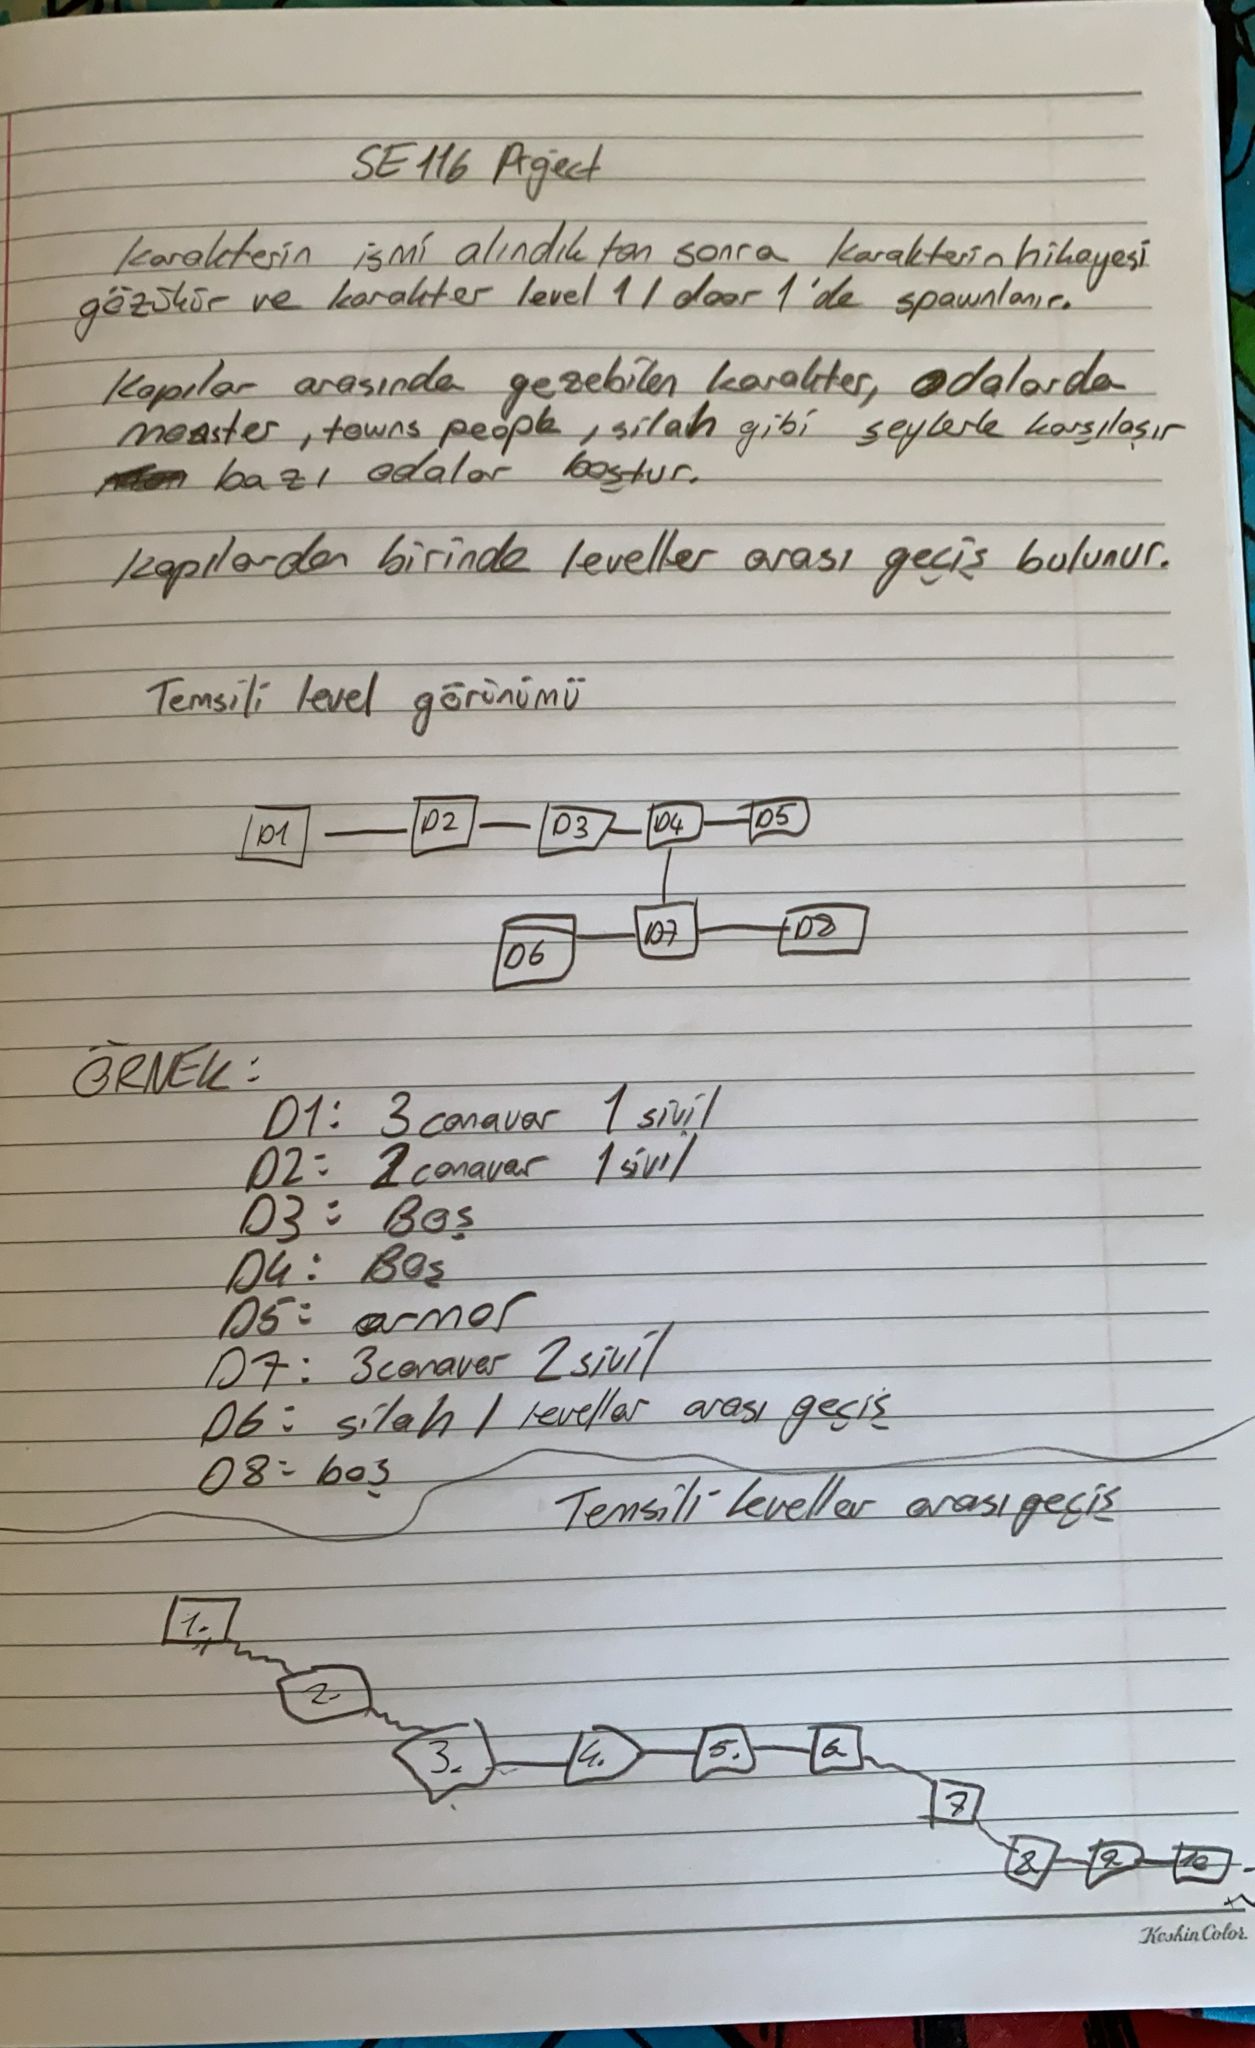 SE116 Project
Karakterin ismi alındıktan sonra karakterin hikayesi
gözükür ve karakter level 1 / door 1'de spawnlanır.
Kapılar arasında gezebilen karakter, odalarda
monster, towns people, silah gibi şeylerle karşılaşır
bazı odalar boştur.
Kapılardan birinde leveller arası geçiş bulunur.
Temsili level görünümü
D1 D2 D3 D4 D5
D6 D7 D8
ÖRNEK:
D1: 3 canavar 1 sivil
D2: 2 canavar 1 sivil
D3: Boş
D4: Boş
D5: armor
D7: 3 canavar 2 sivil
D6: silah / leveller arası geçiş
D8: boş
Temsili leveller arası geçiş
1.
2.
3. 4. 5. 6
7
8 9 10
KeskinColor